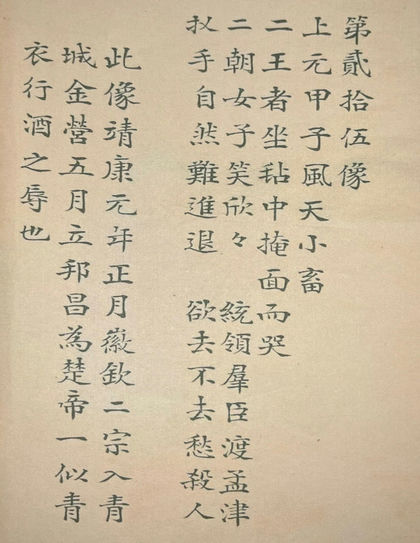 第貳拾伍像
上元甲子風天小畜
二王者坐毡中掩面而哭
二朝女子笑欣々　統領羣臣渡孟津
拟手自然難進退　欲去不去愁殺人
此像靖康元年正月徽欽二宗入青
城金營五月立邦昌為楚帝一似青
衣行酒之辱也